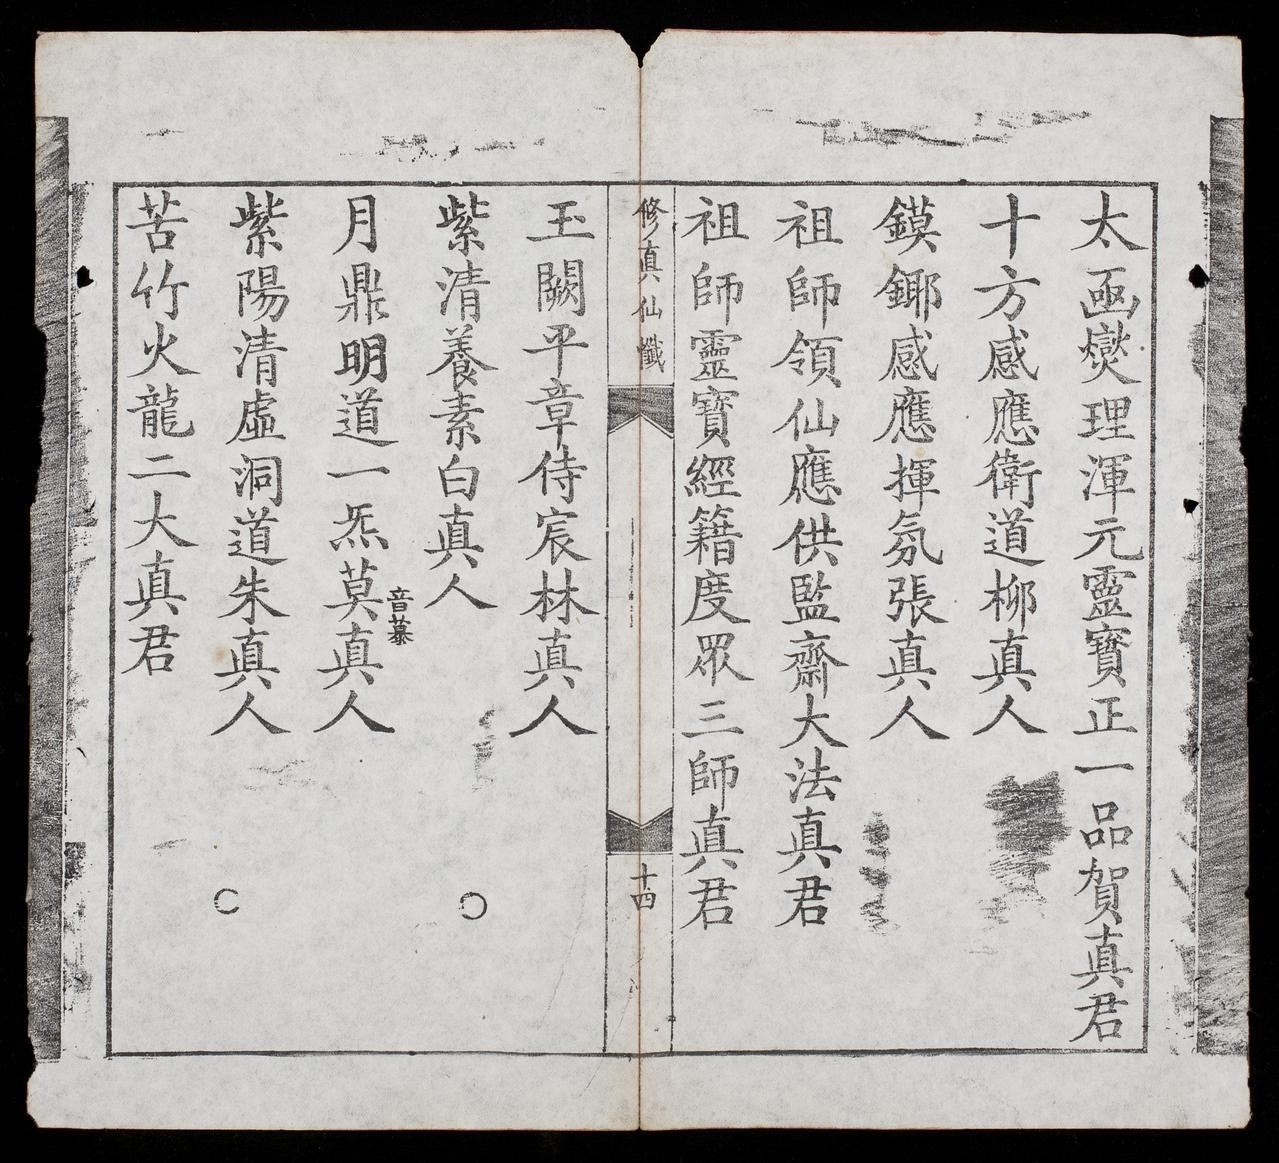 太凾爕理渾元靈寶正一品賀真君
十方感應衛道柳真人
鏌鎁感應揮氛張真人
祖師領仙應供監齋大法真君
祖師靈寶經籍度眾三師真君
修真仙懺
十四
玉闕平章侍宸林真人
紫清養素白真人
月鼎明道一炁莫音慕真人
紫陽清虛洞道朱真人
苦竹火龍二大真君